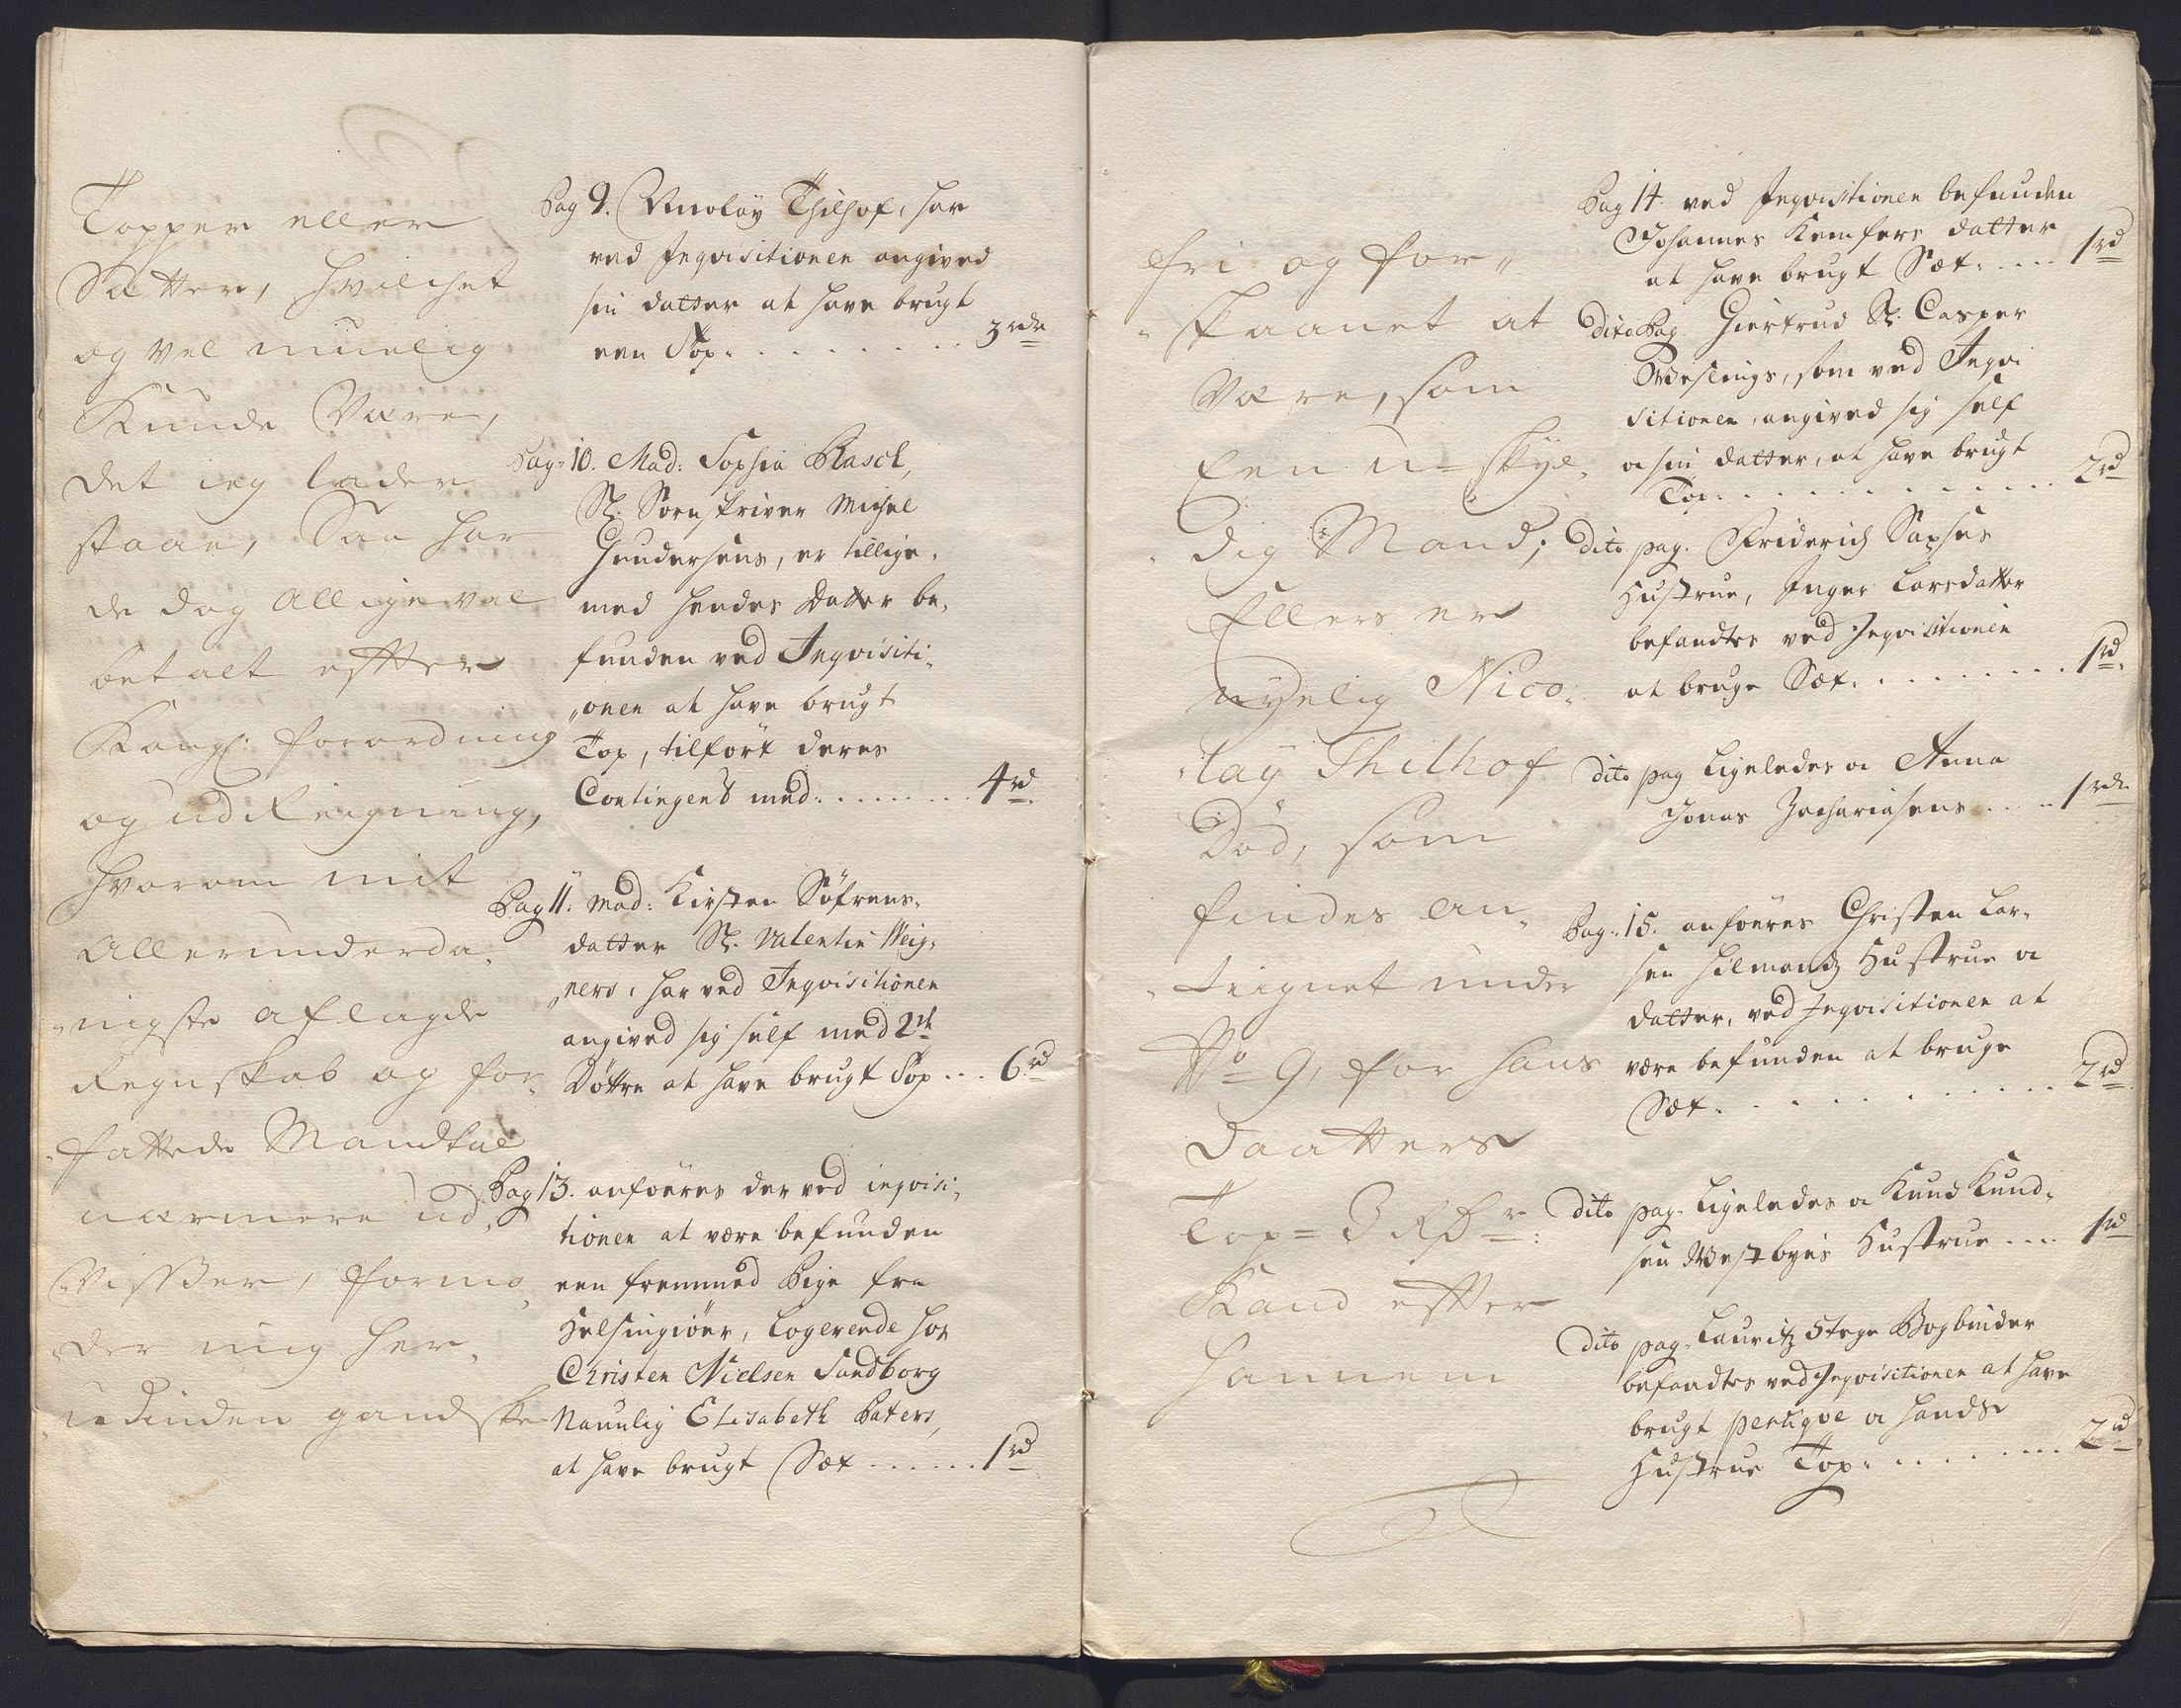 Topper eller
Sætter, hvilchet
og vel muelig
Kunde Være,
det ieg lader
staae, Saa har
de dog Alligevel
betalt effter
Kongl: forordning
og udReigning,
hvorom mit
Allerunderda„
„nigste aflagde
Regnskab og for„
„fattede Mandtal
nærmere ud„
„Visser, formo„
„der mig her„
„udinden gandske
Pag 9. Nicolaÿ Thilhof, har
ved Inqvisitionen angived
sin datter at have brugt
een Top. . . . . . . . . 3 rdr
Pag: 10. Mad: Sophia Rasch,
Sl: Sorenskriver Michel
Gundersens, er tillige„
med hendes Datter be„
funden ved Inqvisiti„
„onen at have brugt
Top, tilført deres
Contingent med: . . . . . . . . 4 rd
Pag 11. Mad: Kirsten Söfrens„
datter Sl. Valentin Weig„
„ners, har ved Inqvisitionen
angived sig self med 2de
Döttre at have brugt Top . . . 6 rd
Pag 13. anföeres der ved inqvisi„
tionen at være befunden
een fremmed Pige fra
Helsingiöer, Logerende hos
Christen Nielsen Sandborg
Naunlig Elisabeth Peters,
at have brugt Sæt . . . . . . 1 rd
fri og for„
„skaanet at
Være, som
Een u=skÿl„
„dig Mand;
Ellers er
nÿelig Nico„
„laÿ Thilhof
Död, som
findes an„
„teignet under
No 9, for hans
Daatters
Top = 3 Rdr:
Kand effter
hannem
Pag 14. ved Inqvisitionen befunden
Johannes Kemfers datter
at have brugt Sæt. . . . . 1 rd
dito Pag. Giertrud Sl: Casper
Weslings, som ved Inqvi
sitionen, angived sig self
og sin datter, at have brugt
Top. . . . . . . . . . . . . . 2 rd
dito pag. Friderich
Hustrue, Inger Larsdatter
befandtes ved Inqvisitionen
at bruge Sæt. . . . . . . . . 1 rd
dito pag Ligeledes og Anna
Jonas Zachariasens . . . . 1 rdr
Pag: 15. anföeres Christen Lar„
sen Hilmands Hustrue og
datter, ved Inqvisitionen at
være befunden at bruge
Sæt. . . . . . . . . . . . . 2 rd
dito pag. Ligeledes og Knud Knud„
sen Westbyes Hustrue . . . . 1 rd
dito pag. Lauritz Stege Bogbinder
befandtes ved Inqvisitionen at have
brugt peruqve og hands
Hustrue Top. . . . . . . . . 2 rd